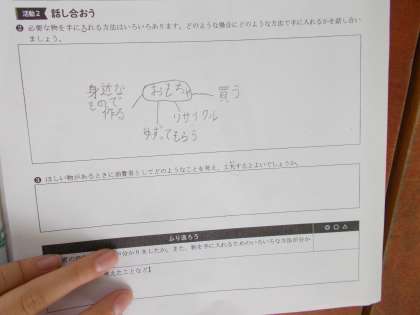 活動2 話し合おう
❷ 必要な物を手に入れる方法はいろいろあります。どのような場合にどのような方法で手に入れるかを話し合い
ましょう。
身近な
もので
作る
おもちゃ
買う
リサイクル
ゆずってもらう
❸ ほしい物があるときに消費者としてどのようなことを考え、工夫するとよいでしょうか。
ふり返ろう
◎○△
が分かりましたか。また、物を手に入れるためのいろいろな方法が分か
考えたことなど】